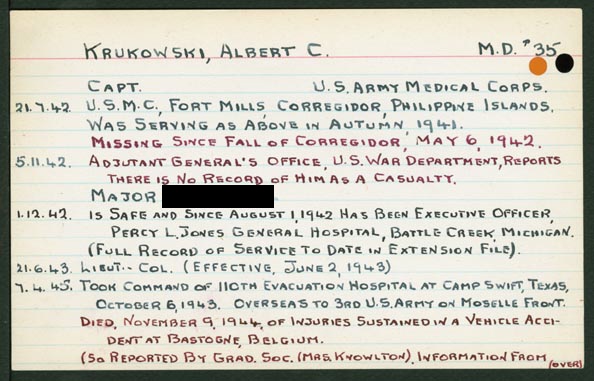 KRUKOWSKI, ALBERT C. M.D. '35
CAPT. U.S. ARMY MEDICAL CORPS.
21.7.42. U.S.M.C., FORT MILLS, CORREGIDOR, PHILIPPINE ISLANDS.
WAS SERVING AS ABOVE IN AUTUMN, 1941.
MISSING SINCE FALL OF CORREGIDOR, MAY 6, 1942.
5.11.42. ADJUTANT GENERAL'S OFFICE, U.S. WAR DEPARTMENT, REPORTS
THERE IS NO RECORD OF HIM AS A CASUALTY.
MAJOR
1.12.42. IS SAFE AND SINCE AUGUST 1, 1942 HAS BEEN EXECUTIVE OFFICER,
PERCY L. JONES GENERAL HOSPITAL, BATTLE CREEK, MICHIGAN.
(FULL RECORD OF SERVICE TO DATE IN EXTENSION FILE).
21.6.43. LIEUT.- COL. (EFFECTIVE, JUNE 2, 1943)
7.4.45. TOOK COMMAND OF 110TH EVACUATION HOSPITAL AT CAMP SWIFT, TEXAS,
OCTOBER 6, 1943. OVERSEAS TO 3RD U.S. ARMY ON MOSELLE FRONT.
DIED, NOVEMBER 9, 1944, OF INJURIES SUSTAINED IN A VEHICLE ACCI-
DENT AT BASTOGNE, BELGIUM.
(SO REPORTED BY GRAD. SOC. (MRS. KNOWLTON). INFORMATION FROM (OVER)